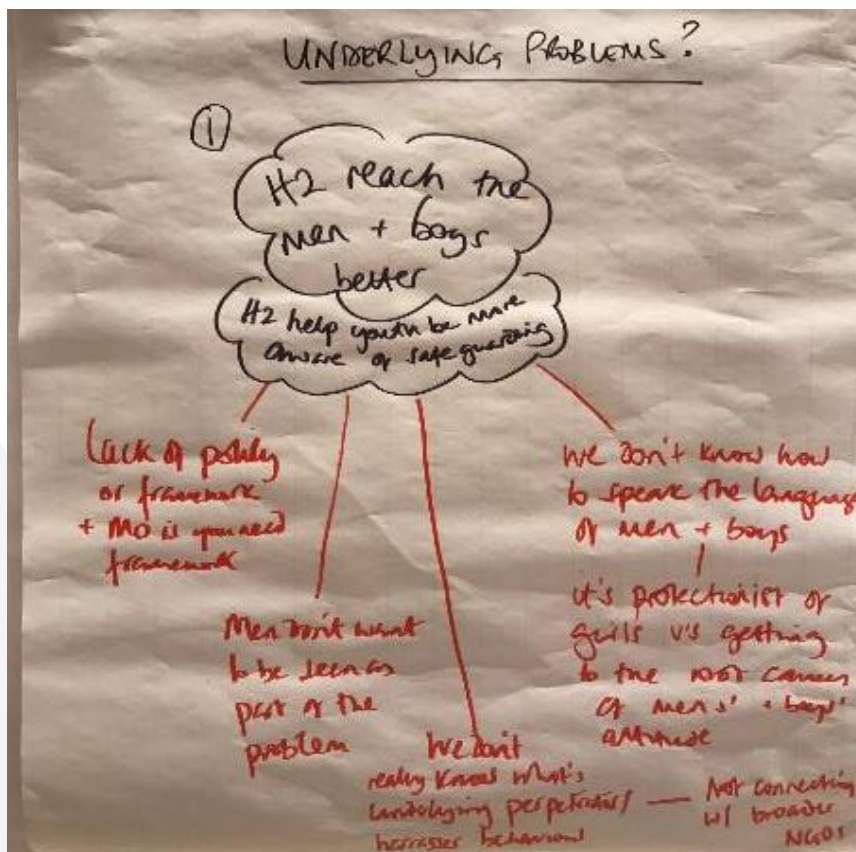 UNDERLYING PROBLEMS?
①
H2 reach the
men + boys
better
H2 help youth be more
aware of safeguarding
Lack of
or framework
+ MO is you need
framework
Men don't want
to be seen as
part of the
problem
We don't
really know what's
underlying perpetrator/
harrasser behaviour
Not connecting
w/ broader
NGOs
We don't know how
to speak the language
of men + boys
it's protectionist of
girls v's getting
to the root causes
of mens' + boys'
attitude